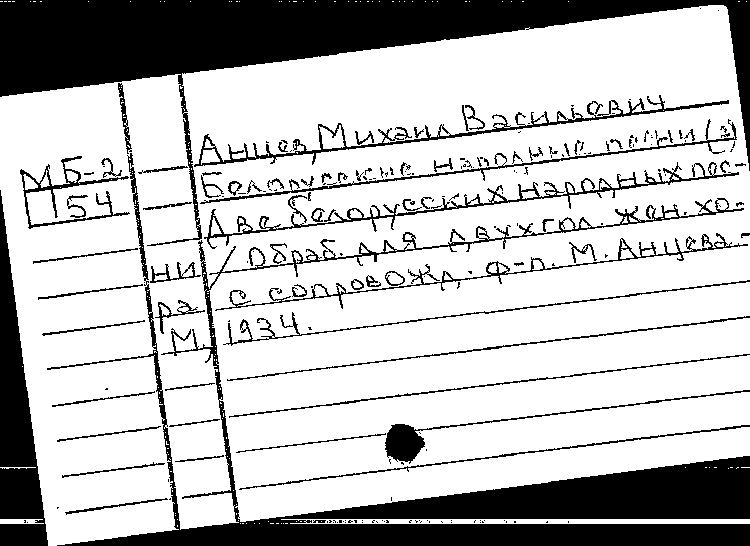 Анцев, Михаил Васильевич
МБ-2 Белорусские народные песни (2)
154 Две белорусских народных пес-
ни / Обраб. для двухгол. жен. хо-
ра с сопровожд. ф-п. М. Анцева. -
М., 1934.